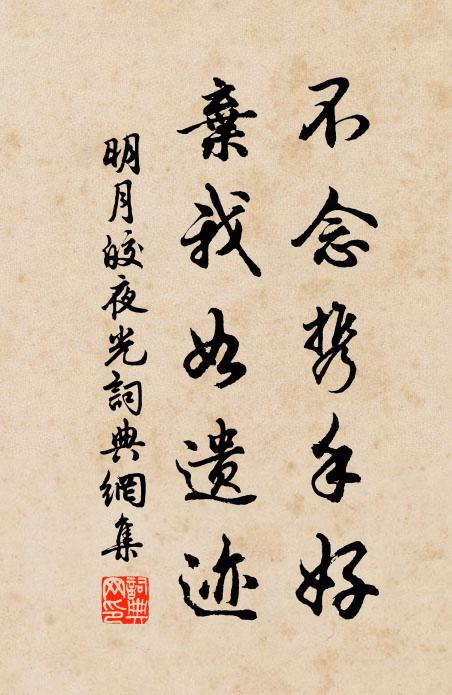 不念携手好
棄我如遗迹
明月皎夜光詞典網集
詞典网印